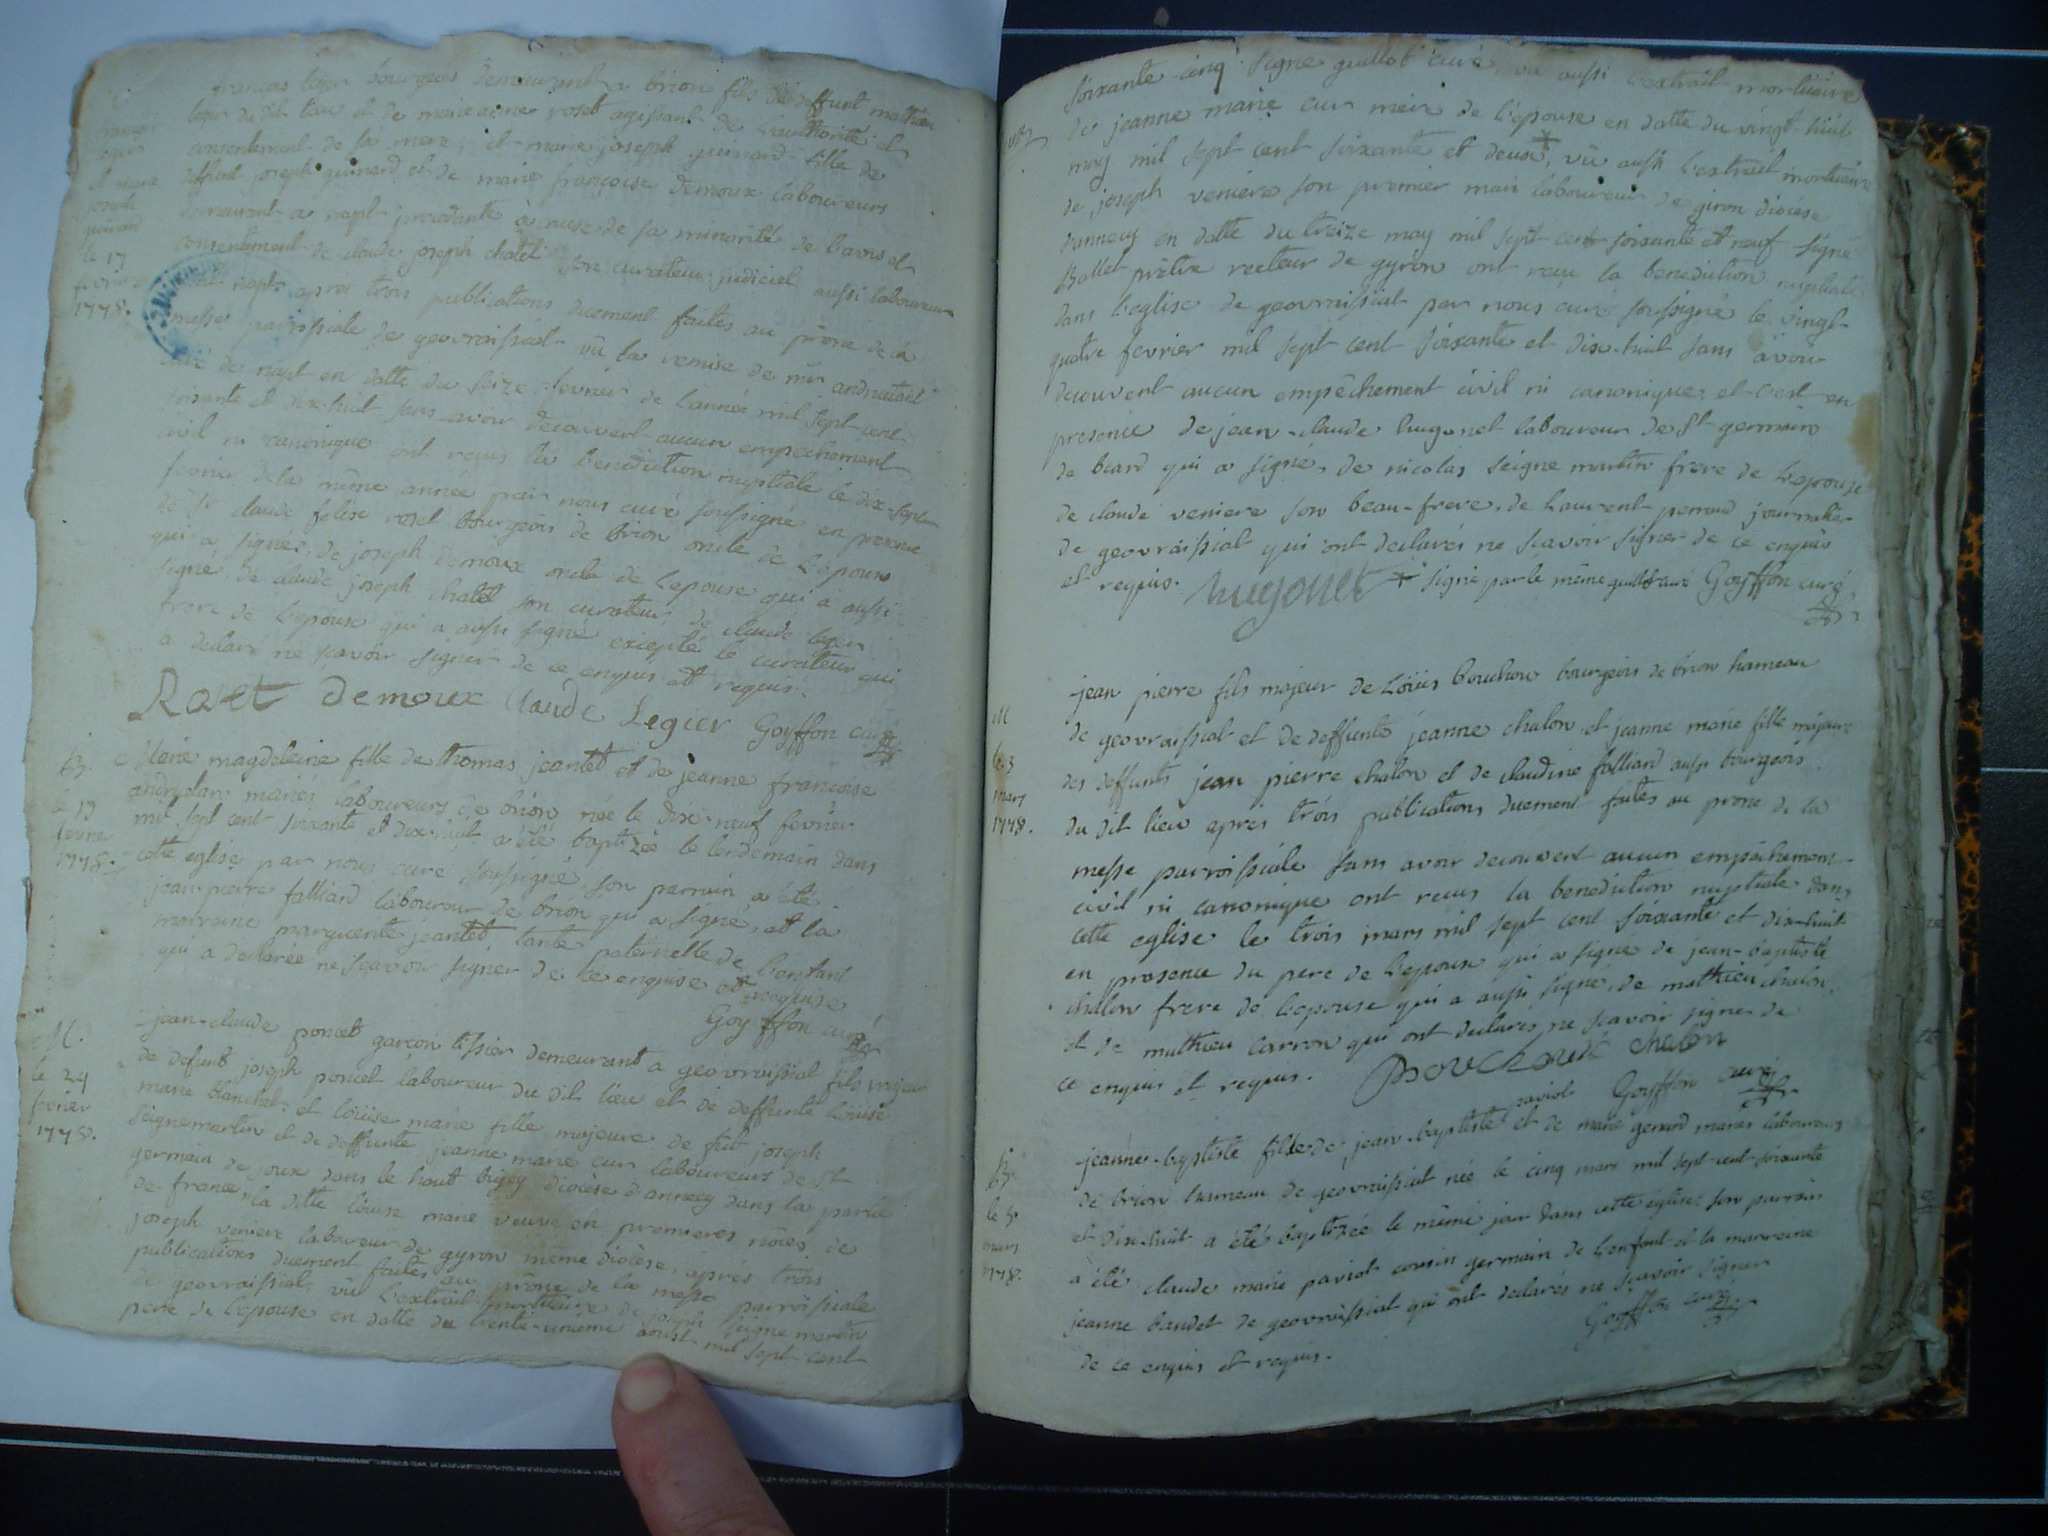 françois legier bourgeois demeurant a brion fils de deffunt mathieu
legier du dit lieu et de marie aimé roset agissant de l'authorité et
consentement de sa mere, et marie joseph guinard fille de
deffunt joseph guinard et de marie françoise demoux laboureurs
demeurant a napt procedante à cause de sa minorité de l'avis et
consentement de claude joseph chatel son curateur judiciel aussi laboureur
napt apres trois publications duement faites au prône de la
messe parroissiale de geovraissiat vû la remise de mr
curé de napt en datte du seize fevrier de l'année mil sept cent
soixante et dix-huit sans avoir decouvert aucun empechement
civil ni canonique ont reçus la benediction nuptiale le dix-sept
fevrier de la même année par nous curé soussigné en presence
de Sr claude felix roset bourgeois de brion oncle de l'epoux
qui a signé, de joseph demoux oncle de l'epouse qui a aussi
signé de claude joseph chatel son curateur de claude legier
frere de l'epoux qui a aussi signé excepté le curateur qui
a declaré ne scavoir signer de ce enquis et requis.
Roset Demoux Claude Legier Goyffon curé
françois
legier
et marie
joseph
guinard
le 17
fevrier
1778.
B.
le 19
fevrier
1778.
Marie magdeleine fille de thomas jeantet et de jeanne françoise
mariés laboureurs de brion née le dix-neuf fevrier
mil sept cent soixante et dix-huit a été baptizée le lendemain dans
cette eglise par nous curé soussigné, son parrain a été
jean-pierre falliard laboureur de brion qui a signé, et la
marraine marguerite jeantet tante paternelle de l'enfant
qui a declarée ne scavoir signer de ce enquise et requise
Goyffon curé
M.
le 24
fevrier
1778.
jean-claude poncet garcon tissier demeurant a geovraissiat fils majeur
de defunt joseph poncet laboureur du dit lieu et de deffunte Loüise
marie blanchet, et loüise marie fille majeure de feu joseph
seignemartin et de deffunte jeanne marie cur laboureurs de St
germain de joux dans le haut bugey diocèse d'annecy dans la partie
de france, la ditte loüise marie veuve en premieres nôces de
joseph veniere laboureur de gyron même diocèse, apres trois
publications duement faites au prône de la messe parroissiale
de geovraissiat, vû l'extrait mortuaire de joseph seigne martin
pere de l'epouse en datte du trente-unieme aoust mil sept cent
soixante cinq signé guillot curé, vu aussi l'extrait mortuaire
de jeanne marie cur mere de l'epouse en datte du vingt-huit
may mil sept cent soixante et deux, vû aussi l'extrait mortuaire
de joseph veniere son premier mari laboureur de giron diocèse
d'annecy en datte du treize may mil sept cent soixante et neuf signé
Ballet prêtre recteur de gyron ont reçu la benediction nuptiale
dans l'eglise de geovraissiat par nous curé soussigné le vingt-
quatre fevrier mil sept cent soixante et dix-huit sans avoir
decouvert aucun empêchement civil ni canonique, et c'est en
presence de jean-claude hugonet laboureur de St germain
de beard qui a signé, de nicolas seigne martin frere de l'epouse
de claude veniere son beau-frere, de laurent perraud journalier
de geovraissiat qui ont declarés ne scavoir signer de ce enquis
et requis. hugonet signé par le même guillot curé Goyffon curé
M
le 3
mars
1778.
jean pierre fils majeur de Loüis bouchon bourgeois de brion hameau
de geovraissiat et de deffunte jeanne chalon, et jeanne marie fille majeure
des deffunts jean pierre chalon et de claudine falliard aussi bourgeois
du dit lieu apres trois publications duement faites au prone de la
messe parroissiale sans avoir decouvert aucun empechement
civil ni canonique ont reçus la benediction nuptiale dans
cette eglise le trois mars mil sept cent soixante et dix-huit
en presence du pere de l'epoux qui a signé de jean-baptiste
chalon frere de l'epouse qui a aussi signé, de mathieu chalon
et de mathieu carron qui ont declarés ne scavoir signer de
ce enquis et requis. chalon
Goyffon curé
B.
le 5
mars
1778.
jeanne-baptiste fille de jean-baptiste paviot et de marie gerard mariés laboureurs
de brion hameau de geovraissiat née le cinq mars mil sept-cent soixante
et dix-huit a été baptizée le même jour dans cette eglise, son parrain
a été claude marie paviot cousin germain de l'enfant et la marraine
jeanne baudet de geovraissiat qui ont declarés ne scavoir signer
de ce enquis et requis.
Goyffon curé